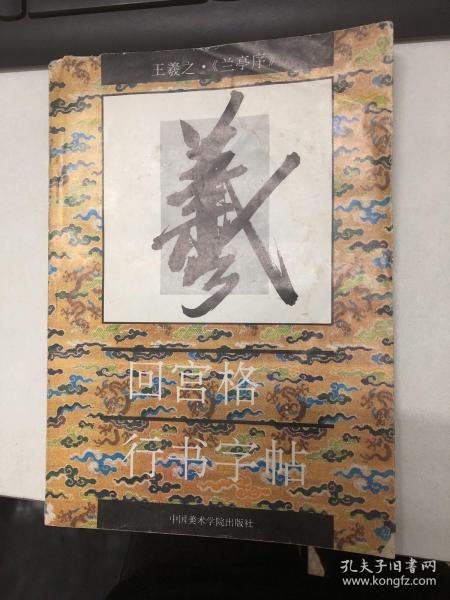 王羲之·《兰亭序》
羲
回宫格
行书字帖
中国美术学院出版社
孔夫子旧书网
www.kongfz.com